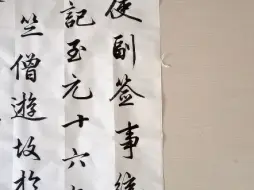 使副签事統
記至元十六
竺僧遊故於